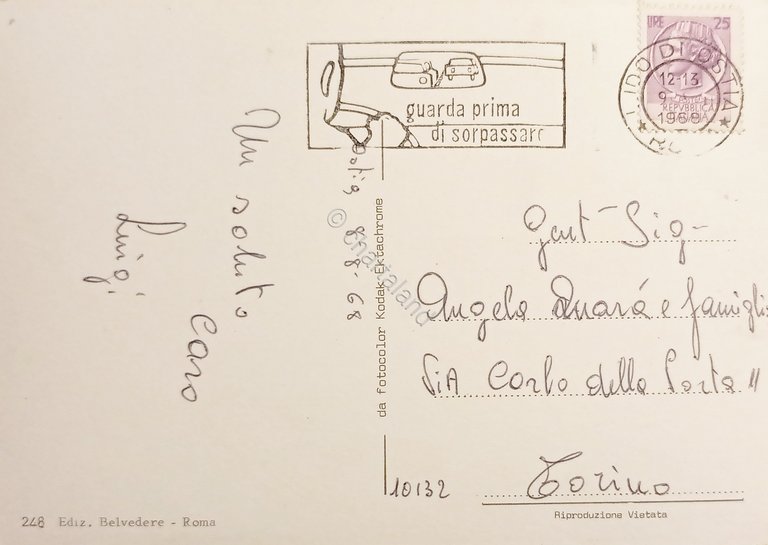 LIRE 25
guarda prima
di sorpassare
LIDO DI OSTIA
12-13
9
1968
REPVBBLICA
Ostia, 8-8-68
Un saluto
caro
Luigi
© Chartaland
da fotocolor Kodak Ektachrome
Gent Sig-
Angelo Quará e famiglia
Via Carlo della Porta 11
10132 Torino
Riproduzione Vietata
248 Ediz. Belvedere - Roma